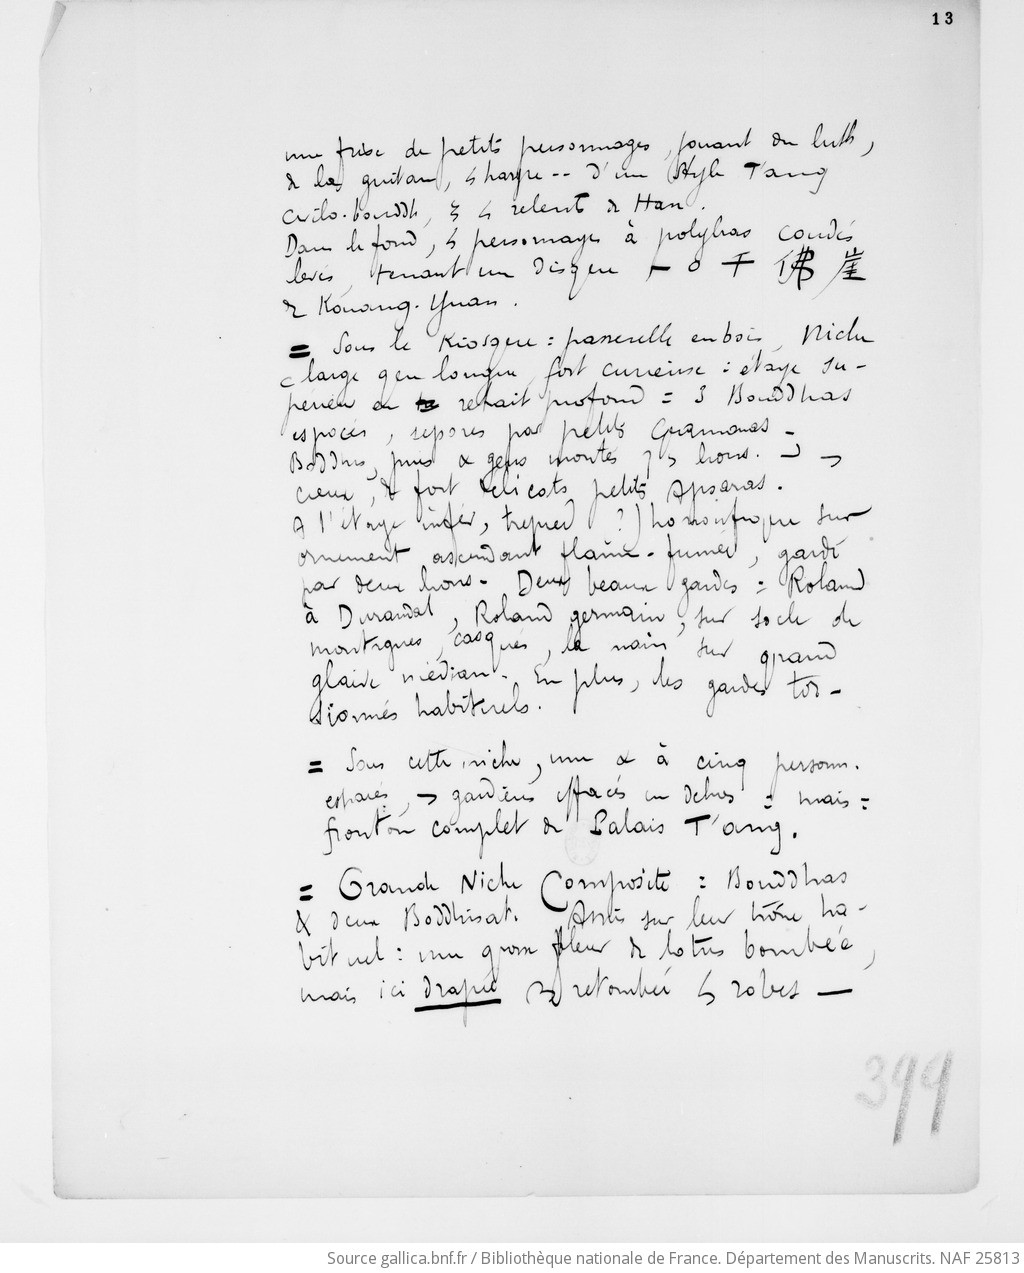 13
une frise de petits personnages, jouant du luth,
de la guitare, harpe -- d'un style T'ang
bouddh, & relents de Han.
Dans le fond, personnages à polybras coudés
levés, tenant un disque 千 佛 崖
de Kouang-Yuan.
= Sous le Kiosque : passerelle en bois, Niche
large que longue, fort curieuse : étage su-
périeur en retrait profond = 3 Bouddhas
espacés, séparés par petits
Boddhis, puis & gens montés lions.
creux, de fort délicats petits Apsaras.
A l'étage infér, trépied ?) sur
ornement ascendant flamme-fumée, gardé
par deux lions - Deux beaux gardes = Roland
à Durandal, Roland germain, sur socle de
montagnes, casqués, la main sur grand
glaive médian. En plus, les gardes tor-
sionnés habituels.
= Sous cette niche, une à cinq personn.
espacés, gardiens effacés en dehors = mais =
fronton complet de Palais T'ang.
= Grande Niche Composite = Bouddhas
& deux Boddhisat. Assis sur leur trône ha-
bituel : une grosse fleur de lotus bombée,
mais ici drapée retombée robes —
399
Source gallica.bnf.fr / Bibliothèque nationale de France. Département des Manuscrits. NAF 25813